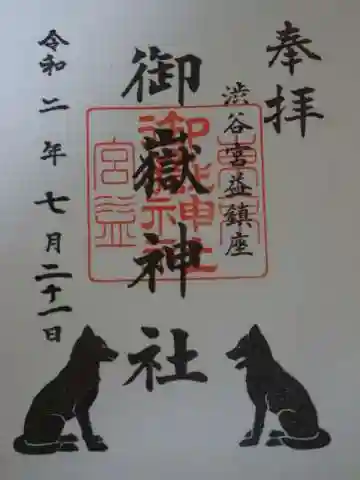 奉拝
渋谷宮益鎮座
御嶽神社
令和二年七月二十一日
宮益